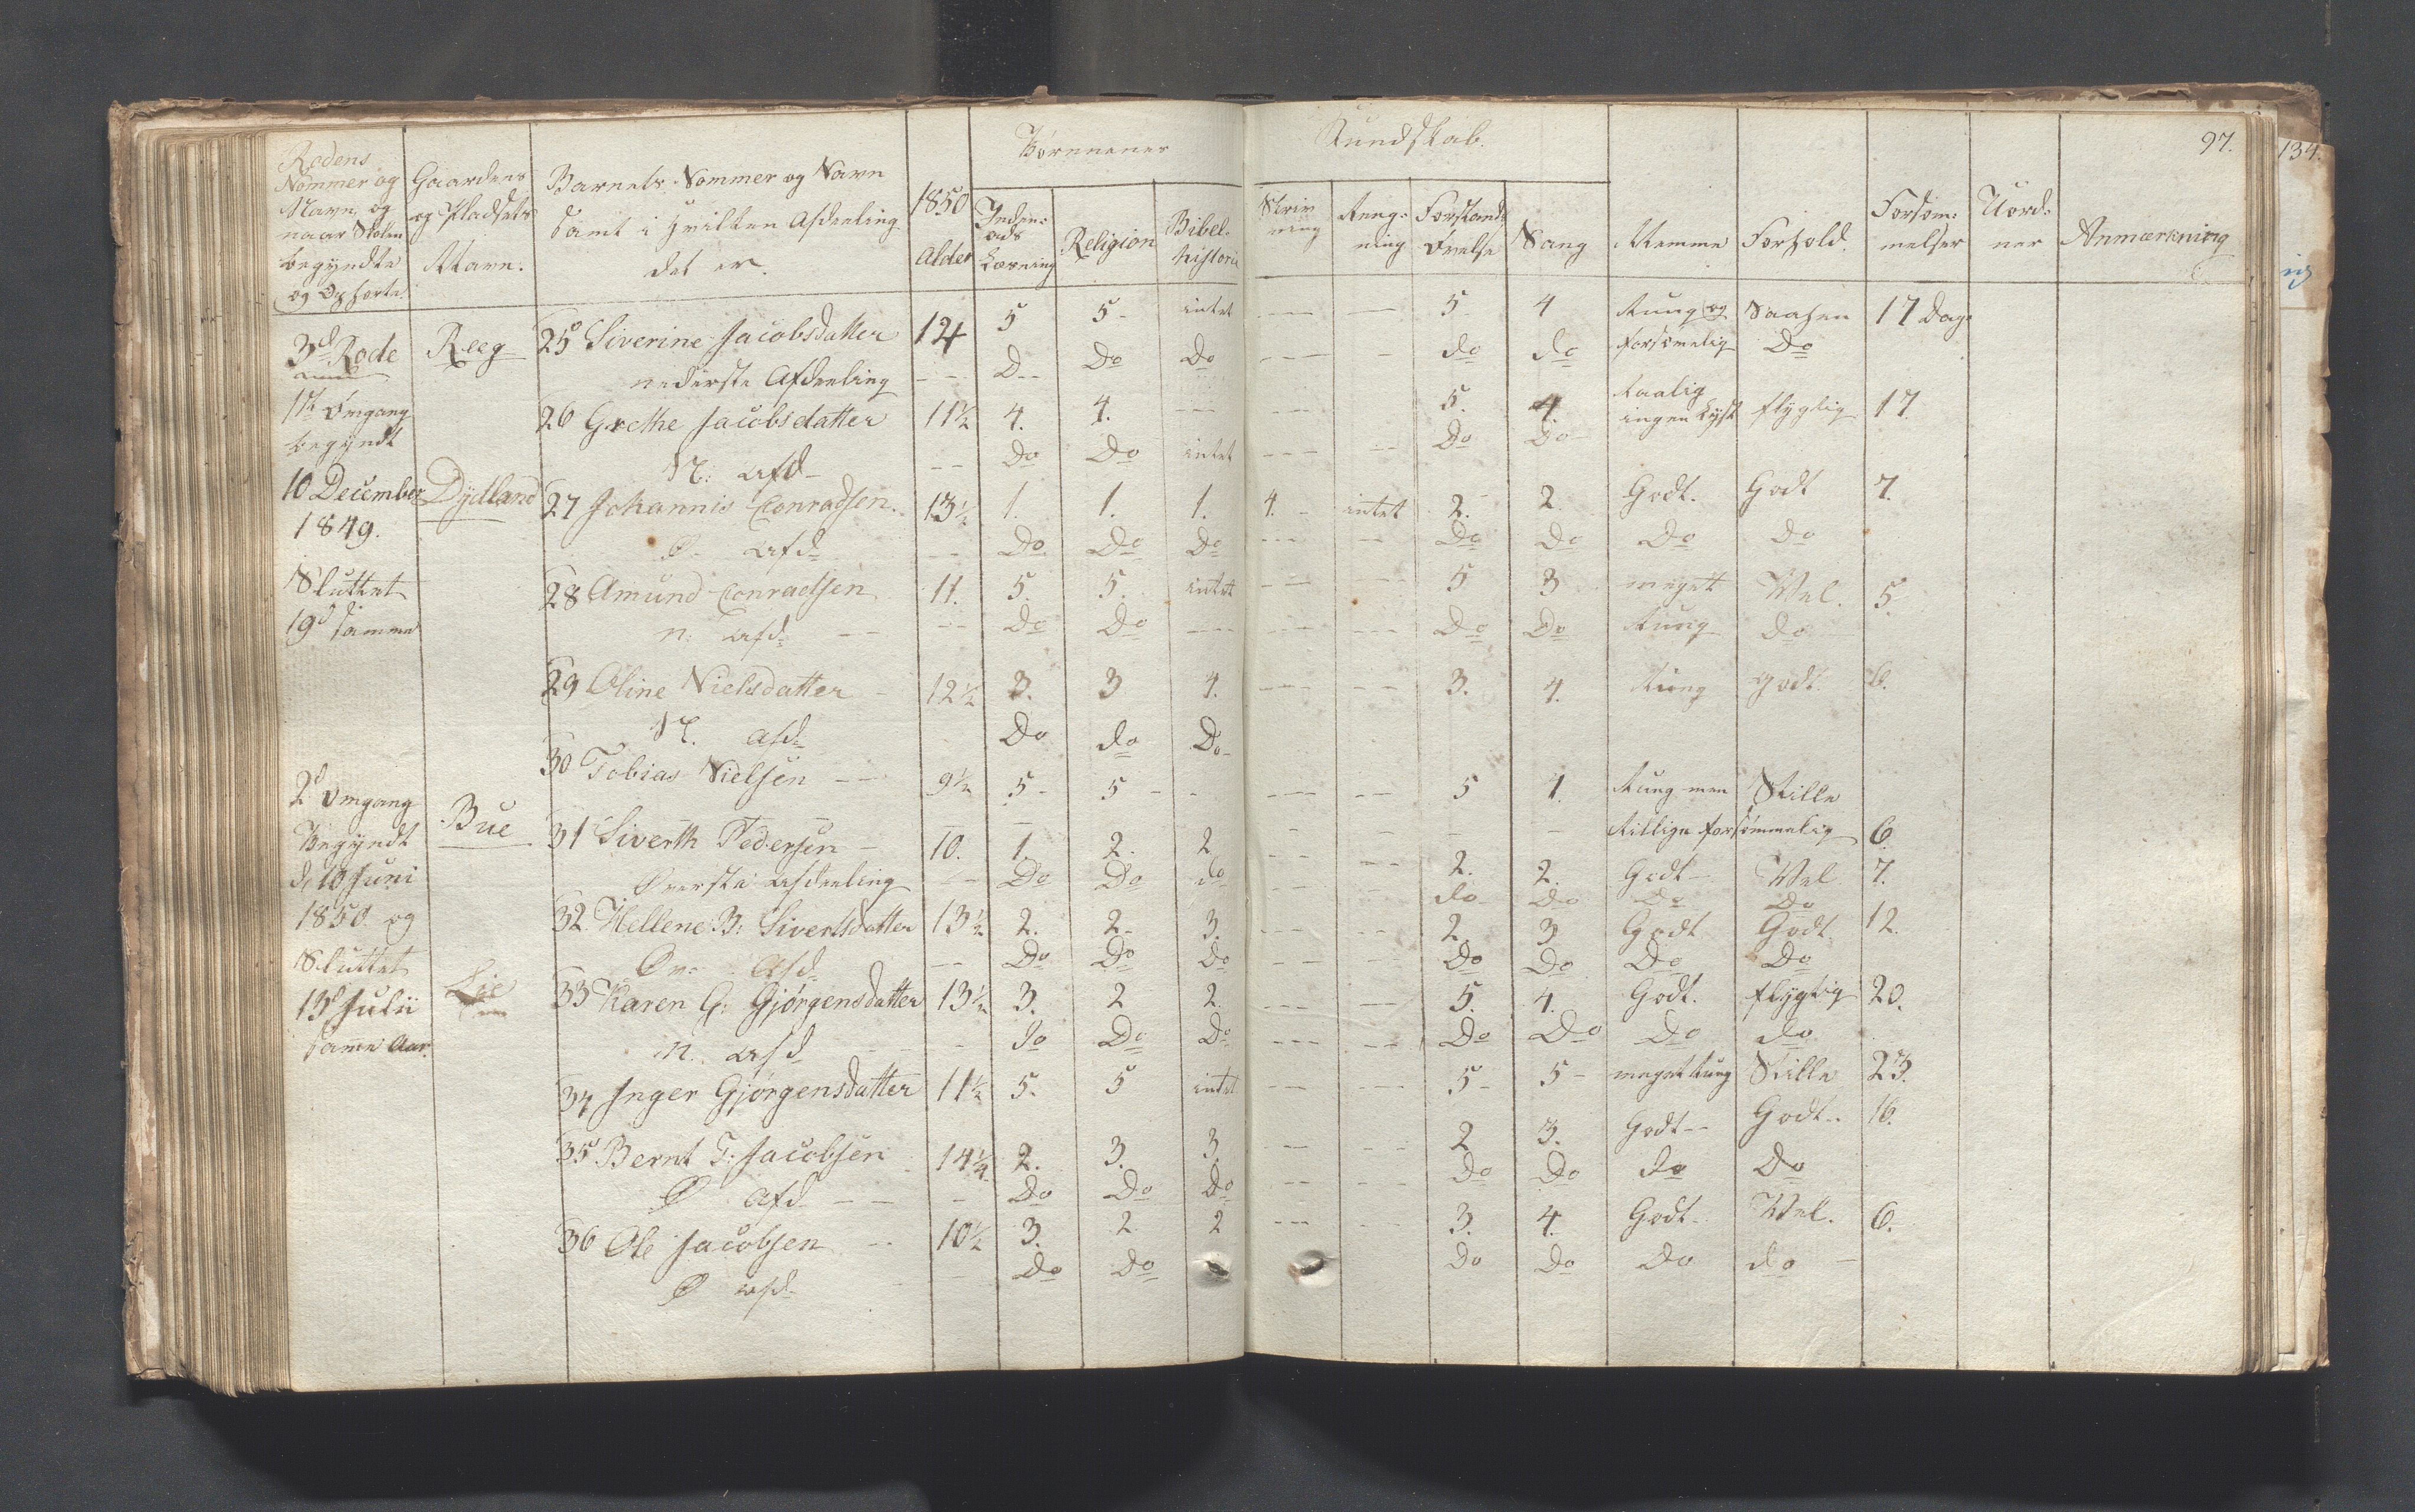 Børnenes Kundskab. 97.
134.
Rodens Nommer og Navn, og naar Skolen begyndte og Ophørte.
Gaardens og Pladsets Navn.
Barnets Nommer og Navn samt i hvilken Afdeeling det er.
1850 Alder
Inden- ads Læsning
Religion
Bibel- historie
Skriv ning
Reng- ning
Forstands Øvelse
Sang
Nemme
Forhold.
Forsøm- melser
Uord- ner
Anmærkning
3d Rode Reeg 25 Siverine Jacobsdatter 12 5 5 intet --- -- 5 4 tung og Saasen 17 Dage
nederste Afdeeling -- D-- Do Do --- - do do forsømelig Do
1te Omgang begyndt
26 Grethe Jacobsdatter 11½ 4. 4. --- -- 5. 4. ingen Lyst flygtig 17
N: afd -- Do Do intet --- -- Do Do
10 December 1849.
Dydland 27 Johannis Conradsen. 13½ 1. 1. 1. 4. - intet 2. 2. Godt. Godt 7.
Ø. afd -- Do Do Do --- -- Do Do Do do
Sluttet 19d samme
28 Amund Conradsen 11. 5. 5. intet --- --- 5 3 meget Vel. 5.
n: afd: -- -- Do Do --- --- --- Do Do tung do
29 Oline Nielsdatter - 12½ 3. 3 4. --- --- 3. 4. tung godt. 6.
N. afd: Do do Do
30 Tobias Nielsen -- 9½ 5 - 5 - - --- -- 5 4. tung men Stille
forsømmelig 6
2d Omgang Begyndt d. 10 Juni 1850. og Sluttet 13d Julii samme Aar.
Bue 31 Siverth Pedersen - 10. 1. 2. 2 -- --- 2. 2. Godt - Vel 7.
Øverste Afdeeling -- Do Do do -- -- do Do Do Do
32. Hellene B: Sivertsdatter 13½ 2. 2. 3. -- -- 2. 3 Godt Godt 12.
Øv: Afd -- Do Do Do -- -- Do Do Do Do
Lie 33 Karen G: Gjørgensdatter 13½ 3. 2 2. --- -- 5. 4. Godt. flygtig 20.
n. afd - do Do Do --- -- Do Do do do
34 Inger Gjørgensdatter 11½ 5. 5 intet --- --- 5 - 5 - meget tung Stille 23.
35 Bernt T: Jacobsen 14¼ 2. 3. 3. -- --- 2 3. Godt -- Godt -- 16.
Ø Afd -- - Do Do Do -- --- do Do do Do
36 Ole Jacobsen -- 10½ 3. 2 2 --- -- 3. 4. Godt - Vel. 6.
Ø afd - Do Do Do Do Do do